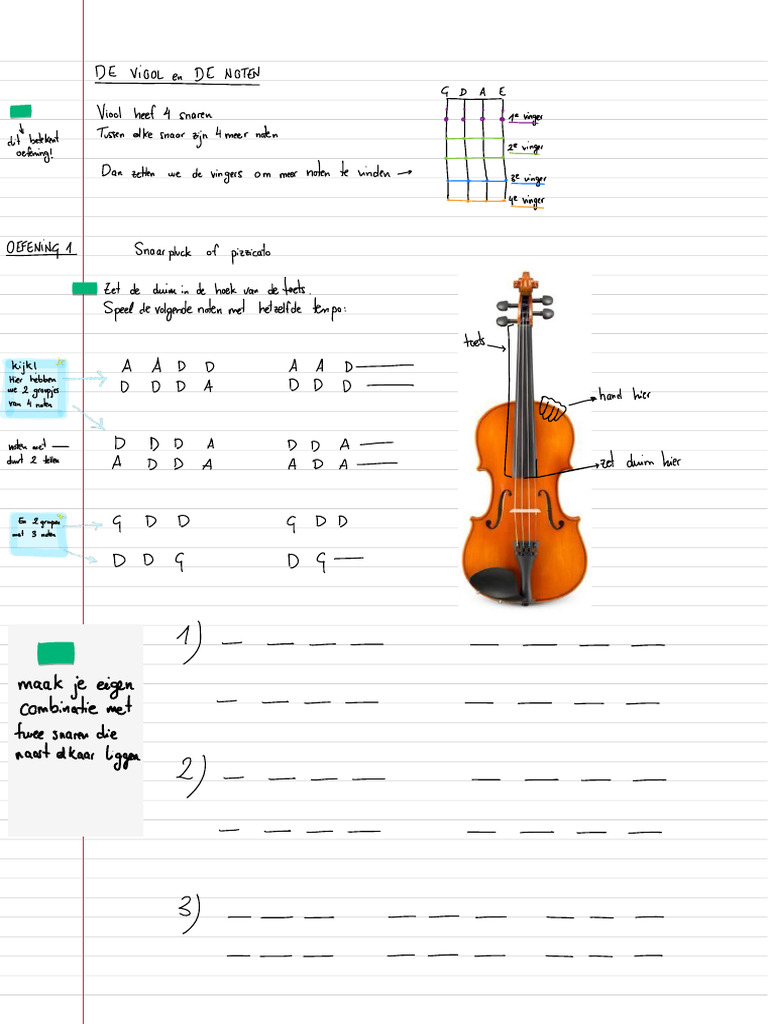 DE VIOOL en DE NOTEN
Viool heef 4 snaren
Tussen elke snaar zijn 4 meer noten
Dan zetten we de vingers om meer noten te vinden →
dit betekent
oefening!
G D A E
1e vinger
2e vinger
3e vinger
4e vinger
OEFENING 1
Snaarpluck of pizzicato
Zet de duim in de hoek van de toets.
Speel de volgende noten met hetzelfde tempo:
kijk!
Hier hebben
we 2 groepjes
van 4 noten
A A D D A A D —
D D D A D D D —
noten met —
duurt 2 tellen
D D D A D D A —
A D D A A D A —
En 2 groepen
met 3 noten
G D D G D D
D D G D G —
toets
hand hier
zet duim hier
maak je eigen
combinatie met
twee snaren die
naast elkaar liggen
1) _ _ _ _ _ _ _ _
_ _ _ _ _ _ _ _
2) _ _ _ _ _ _ _ _
_ _ _ _ _ _ _ _
3) _ _ _ _ _ _ _ _ _
_ _ _ _ _ _ _ _ _